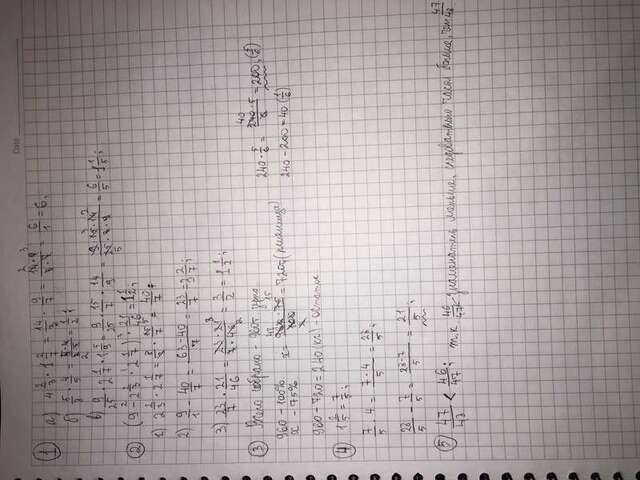 Date
1 а) 4 2/3 · 1 2/7 = 14/3 · 9/7 = 14·9/3·7 = 6/1 = 6;
б) 5/8 · 4/5 = 5·4/8·5 = 1/2;
в) 9/25 · 2 1/7 · 1 5/9 = 9/25 · 15/7 · 14/9 = 9·15·14/25·7·9 = 6/5 = 1 1/5;
2 (9 - 2 2/3 · 2 1/7) · 21/46 = 1 1/2;
1) 2 2/3 · 2 1/7 = 8/3 · 15/7 = 40/7;
2) 9/1 - 40/7 = 63-40/7 = 23/7 = 3 2/7;
3) 23/7 · 21/46 = 23·21/7·46 = 3/2 = 1 1/2;
3 Всего собрано - 960т зерно
960 - 100%
x - 75%
x = 960·75/100 = 720т (пшеница)
960 - 720 = 240 (кг) - остаток
240 · 5/6 = 240·5/6 = 200, (5/6)
240 - 200 = 40 (1/6)
4 1 2/5 = 7/5;
7/5 · 4 = 7·4/5 = 28/5;
28/5 - 7/5 = 28-7/5 = 21/5;
5 47/48 < 46/47; т.к. 46/47 знаменатель меньше, следовательно часы больше, чем 47/48